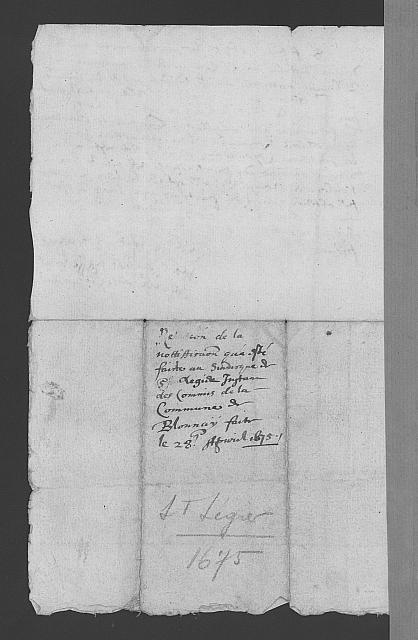 de la
nottiffication qua esté
faite au Sindicque de
St Legier Instan
des Commis de la
Commune de
Blonnay faite
le 28e 1675
St Legier
1675